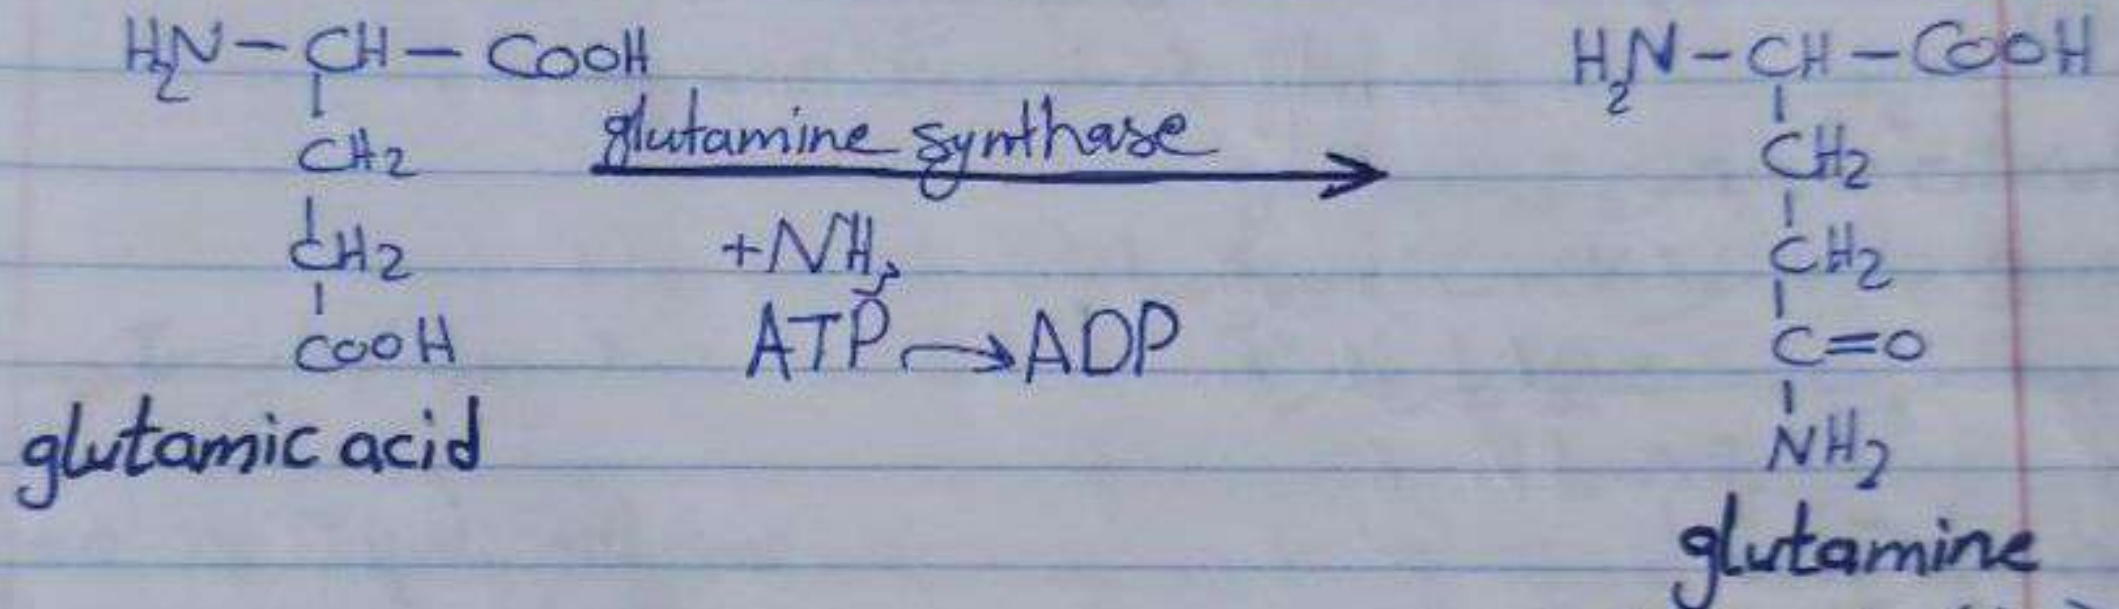 H₂N – CH – COOH
CH₂
CH₂
COOH
glutamic acid
glutamine synthase
+NH₃
ATP → ADP
H₂N – CH – COOH
CH₂
CH₂
C=O
NH₂
glutamine